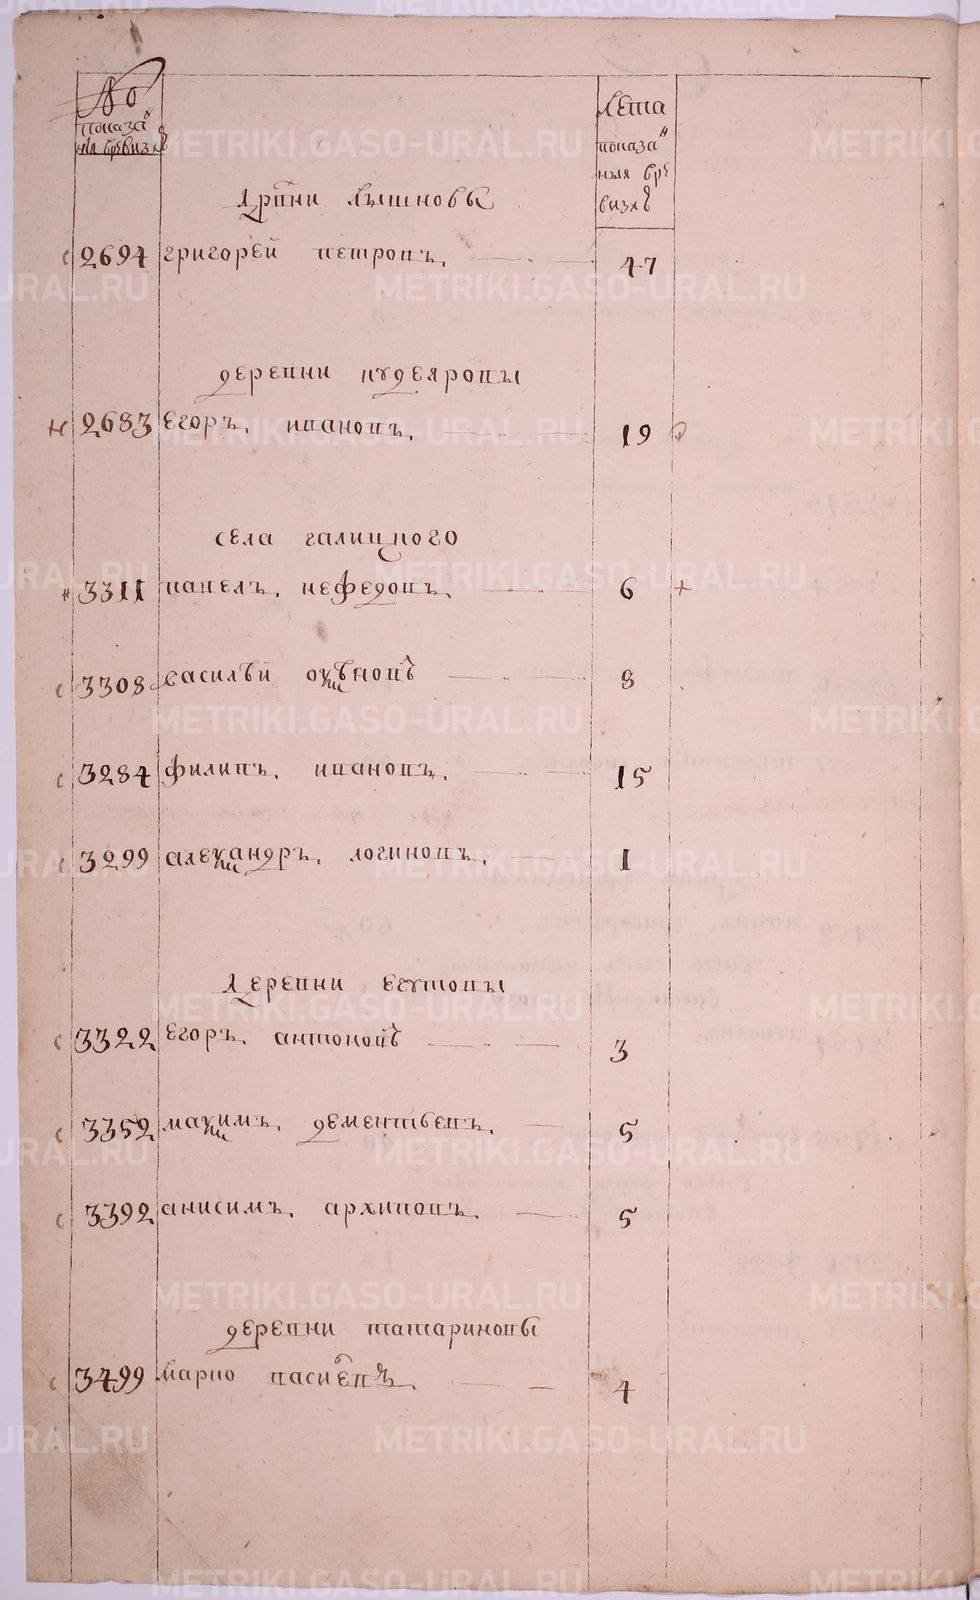 №
показа н
ныя вревизиі
Лета
показа н
ныя вре
визиі
дрвни
2694 григорей петровъ. 47
деревни кудеяровы
н 2683 егоръ. ивановъ. 19
села галицкого
н 3311 павелъ. нефедовъ. 6 +
с 3308 василей 8
с 3284 филипъ. ивановъ. 15
с 3299 александръ. логиновъ. 1
деревни
с 3322 егоръ. антоновъ 3
с 3352 максимъ. дементьевъ. 5
с 3392 анисимъ. архиповъ. 5
деревни татариновы
с 3499 марко васильевъ. 4
METRIKI.GASO-URAL.RU